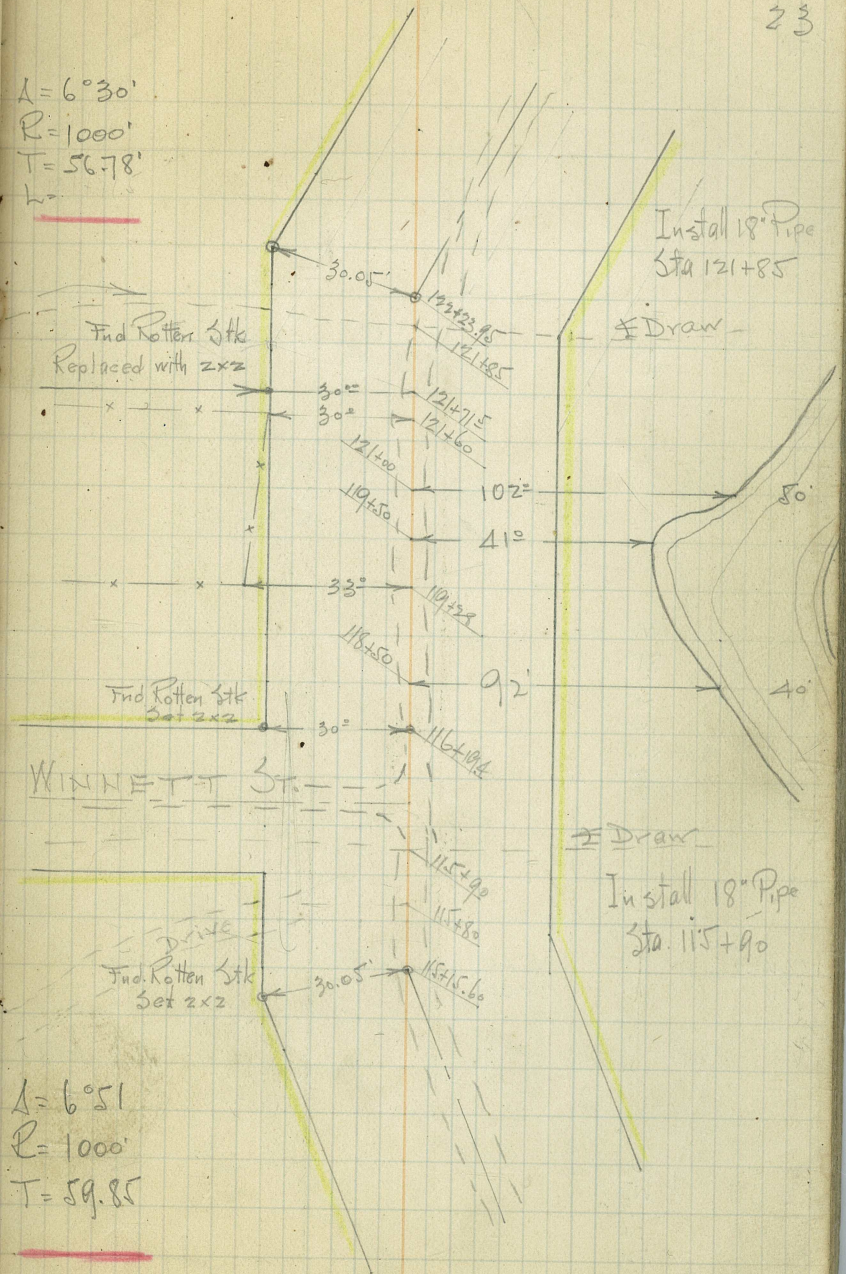 23
Δ = 6°30'
R = 1000'
T = 56.78'
L =
Install 18" Pipe
Sta 121+85
30.05'
122+23.95
℄ Draw
121+85
Fnd Rotten Stk
Replaced with 2x2
30.0
121+71.5
30.0
121+60
121+00
102.0
80'
119+50
41.0
33.0
119+23
118+50
92'
40'
Fnd Rotten Stk
Set 2x2
30.0
WINNETT ST.
℄ Draw
115+90
Install 18" Pipe
115+80
Sta. 115+90
Drive
Fnd. Rotten Stk
Set 2x2
30.05'
115+15.60
Δ = 6°51
R = 1000'
T = 59.85